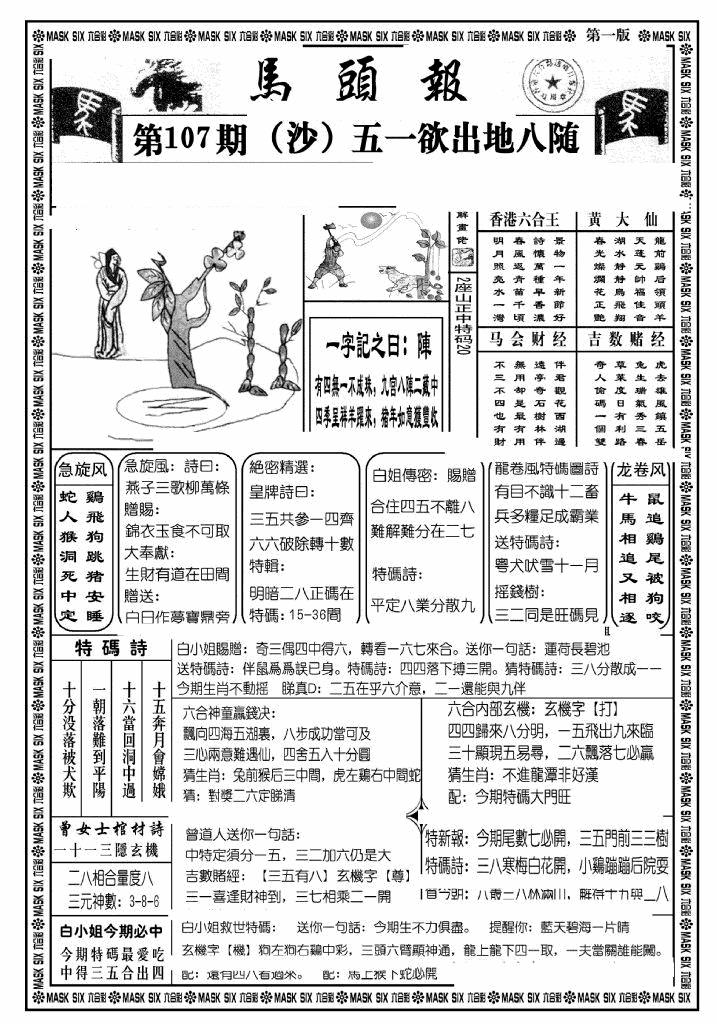 MASK SIX 六合彩
第一版
馬頭報
第107期（沙）五一欲出地八随
解畫佬
2座山正中特码20
香港六合王
景物一年新節好
詩懷萬種早香濃
春風返青苗千頃
明月照亮水一灣
黄大仙
龍前鷄后领頭羊
天蓬元帅福佳音
湖水靜靜鳥飛翔
春光燦爛花正艷
马会财经
伴君觀花西湖邊
遠亭奇石樹林伴
無用却是最有用
不三不四也有財
吉数赌经
虎去雄風鎮五岳
兔生瑞氣秀三春
草葉度日有利路
奇人偷碼一個雙
一字記之曰：陣
有四無一不成珠，九宫八陣二藏中
四季呈祥羊躍來，猪年如意獲豐收
急旋风
鷄飛狗跳猪安睡
蛇人猴洞死中定
急旋風：詩曰：
燕子三歌柳萬條
贈賜：
錦衣玉食不可取
大奉獻：
生財有道在田間
贈送：
白日作夢寶鼎旁
絶密精選：
皇牌詩曰：
三五共參一四齊
六六破除轉十數
特輯：
明暗二八正碼在
特碼：15-36間
白姐傳密：賜贈
合住四五不離八
難解難分在二七
特碼詩：
平定八業分散九
龍卷風特碼圖詩
有目不識十二畜
兵多糧足成霸業
送特碼詩：
粤犬吠雪十一月
摇錢樹：
三二同是旺碼見
龙卷风
鼠追鷄尾被狗咬
牛馬相追又相逐
特碼詩
十五奔月會嫦娥
十六當回洞中過
一朝落難到平陽
十分没落被犬欺
白小姐賜贈：奇三偶四中得六，轉看一六七來合。送你一句話：蓮荷長碧池
送特碼詩：伴鼠爲爲誤已身。特碼詩：四四落下搏三開。猜特碼詩：三八分散成一一
今期生肖不動摇　睇真D：二五在乎六介意，二一還能與九伴
六合神童贏錢决：
飄向四海五湖裏，八步成功當可及
三心兩意難遇仙，四舍五入十分圓
猜生肖：兔前猴后三中間，虎左鷄右中間蛇
猜：對獎二六定睇清
六合内部玄機：玄機字【打】
四四歸來八分明，一五飛出九來臨
三十顯現五易尋，二六飄落七必贏
猜生肖：不進龍潭非好漢
配：今期特碼大門旺
曾女士棺材詩
一十一三隱玄機
二八相合量度八
三元神數：3-8-6
曾道人送你一句話：
中特定須分一五，三二加六仍是大
吉數賭經：【三五有八】玄機字【尊】
三一喜逢財神到，三七相乘二一開
特新報：今期尾數七必開，三五門前三三樹
特碼詩：三八寒梅白花開，小鷄蹦蹦后院耍
白小姐今期必中
今期特碼最爱吃
中得三五合出四
白小姐救世特碼：　送你一句話：今期生不力俱盡。　提醒你：藍天碧海一片晴
玄機字【機】狗左狗右鷄中彩，三頭六臂顯神通，龍上龍下四一取，一夫當關誰能闖。
配：還有四八看過來。　配：馬上猴下蛇必開